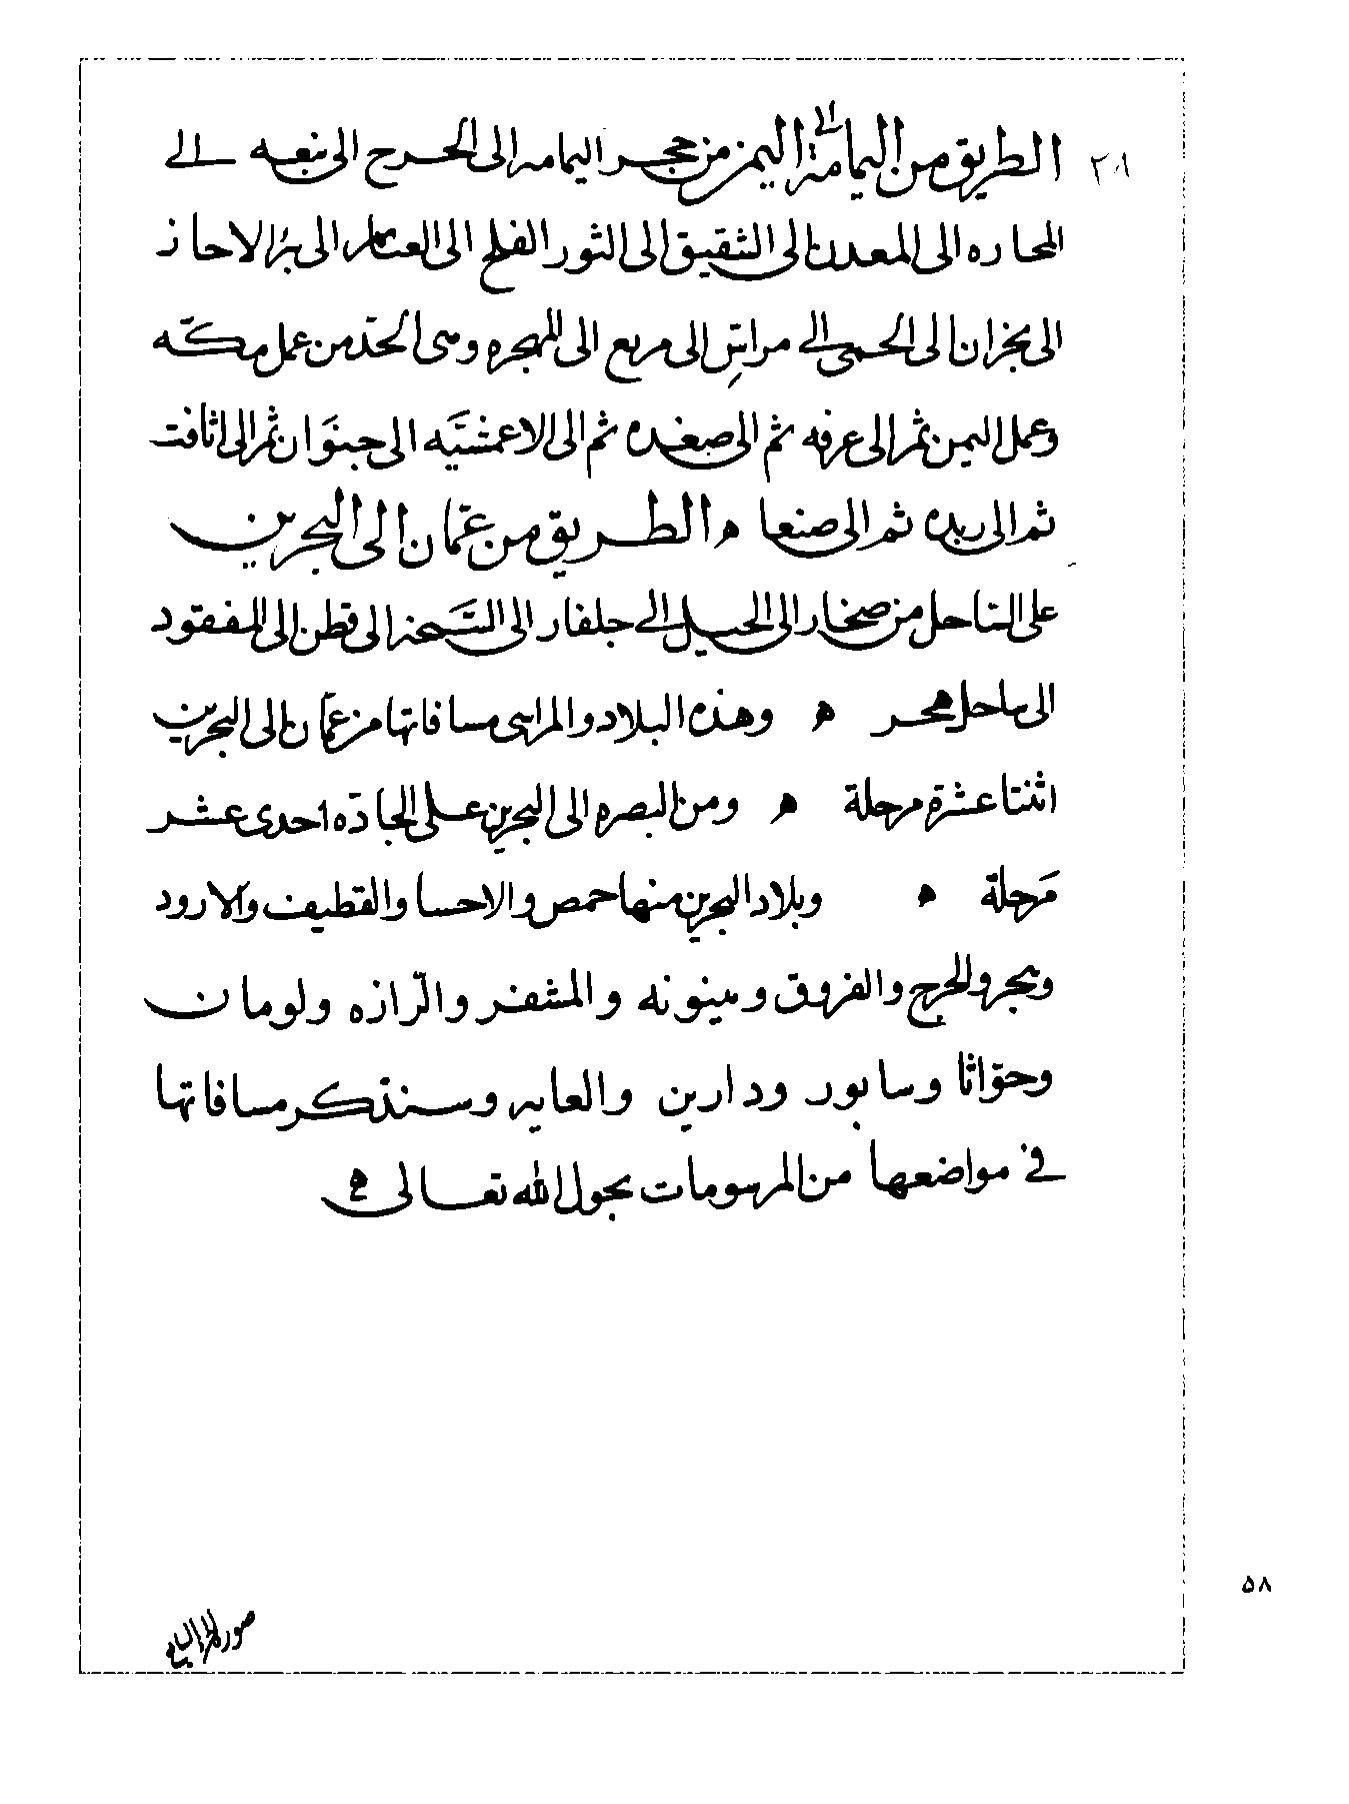 ٢٠٨
الطريق من اليمامة الى اليمن من حجر اليمامه الى الخرج الى نبعه الى
المحاره الى المعدن الى الشقيق الى الثور الى الفلج الى الى بئر الاحاذ
الى نجران الى الحمى الى مراتش الى مريع الى المهجره وهى الحد من عمل مكّه
وعمل اليمن ثم الى عرفه ثم الى صغده ثم الى الاعمشيّه الى جنوَان ثم الى اثافت
ثم الى ريده ثم الى صنعا ه الطريق من عمّان الى البحرين
على الساحل من صحار الى الحبيل الى جلفار الى السَّبخه الى قطن الى المفقود
الى ساحل هجر ه وهذه البلاد والمراسى مسافاتها من عمّان الى البحرين
اثنتا عشرة مرحلة ه ومن البصره الى البحرين على الجادّه احدى عشر
مَرحلة ه وبلاد البحرين منها حمص والاحسا والقطيف والارود
وهجر والخرج والفروق وبينونه والمشقر والرّازه ولومان
وجوّاثا وسابور ودارين والغابه وسنذكر مسافاتها
فى مواضعها من المرسومات بحول الله تعالى ه
٥٨